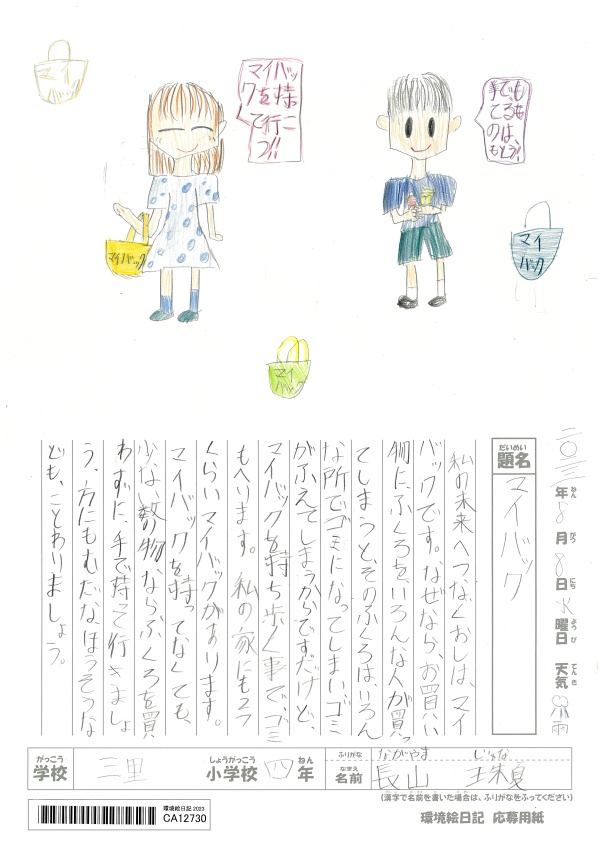 マイ
バック
マイバッ
クを持っ
て行こ
う!!
手でも
てるも
のは、
もとう!!
マイバック
マイ
バック
マイ
バック
二〇二三年8月8日火曜日 天気 雨
ねん がつ にち ようび てんき
だいめい
題名
マイバック
私の未来へつなぐおしは、マイ
バックです。なぜなら、お買い
物に、ふくろを、いろんな人が買っ
てしまうと、そのふくろは、いろん
な所でゴミになってしまい、ゴミ
がふえてしまうからですだけど、
マイバックを持ち歩く事で、ゴミ
もへります。私の家にも2つ
くらいマイバックがあります。
マイバックを持ってなくても、
少ない数物ならふくろを買
わずに、手で持って行きましょ
う、方にもむだなほうそうな
ども、ことわりましょう。
がっこう しょうがっこう ねん
学校 三里 小学校 四年
ふりがな ながやま じゅな
なまえ
名前 長山 珠夏
(漢字で名前を書いた場合は、ふりがなをふってください)
環境絵日記 2023
CA12730
環境絵日記 応募用紙